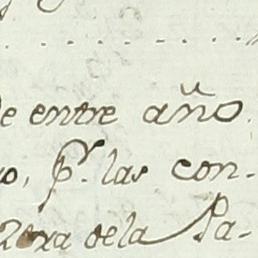 de entre año.
o, pr. las con-
ra de la Pa-